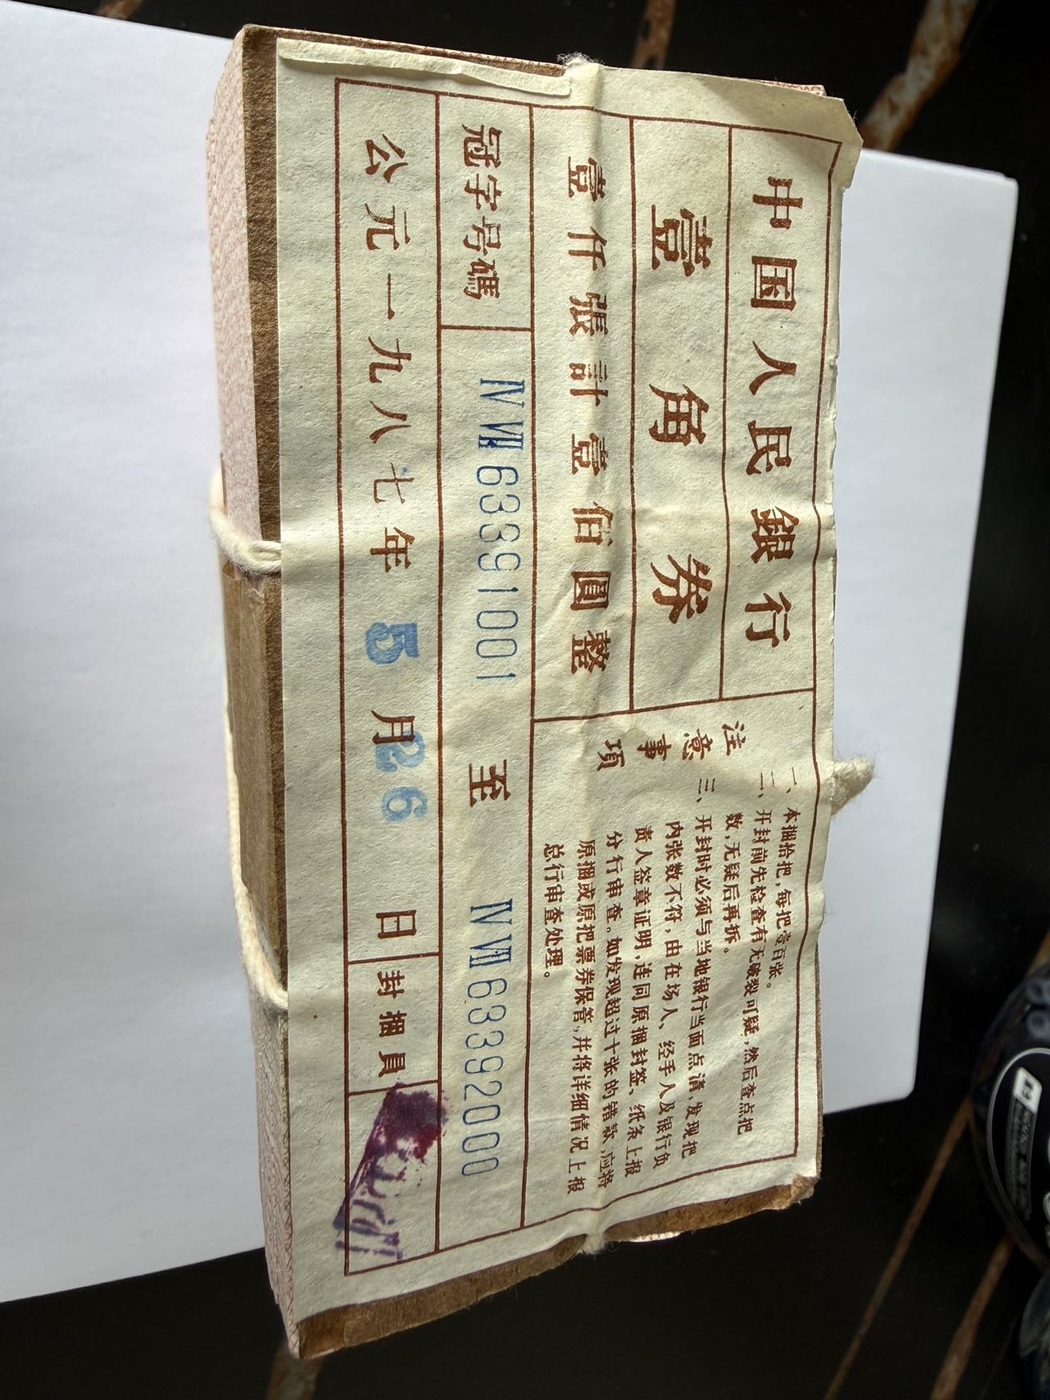 中国人民銀行
壹角券
壹仟張計壹佰圓整
注意事項
一、本捆拾把,每把壹百张。
二、开封前先检查有无破裂可疑,然后查点把
数,无疑后再拆。
三、开封时必须与当地银行当面点清,发现把
内张数不符,由在场人、经手人及银行负
责人签章证明,连同原捆封签、纸条上报
分行审查。如发现超过十张的错款,应将
原捆或原把票券保管,并将详细情况上报
总行审查处理。
冠字号碼 ⅣⅦ63391001 至 ⅣⅦ63392000
公元一九八七年5月26日 封捆員